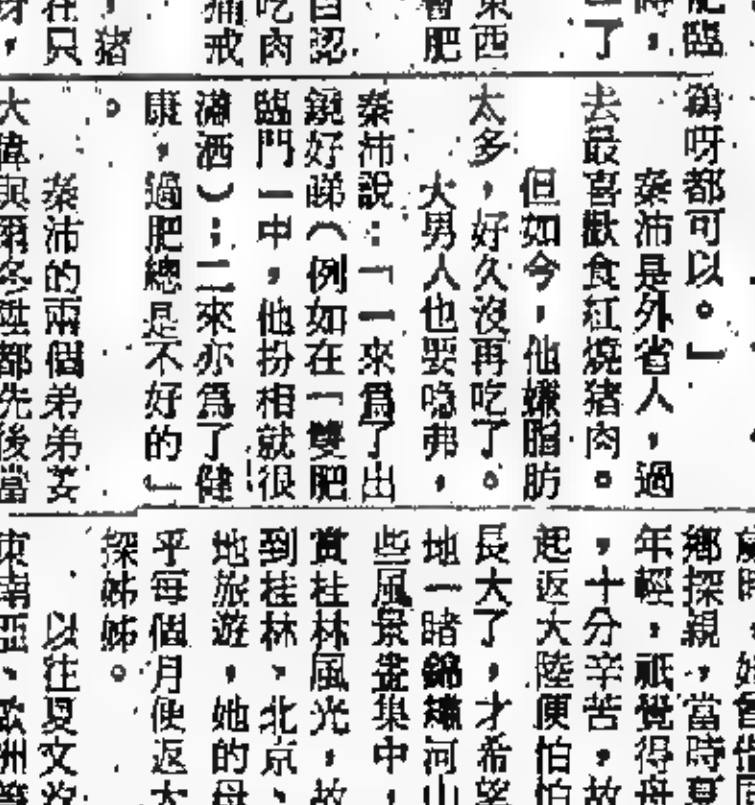 肥臨
時，
了
東西
著肥
自認
吃肉
痛戒
，豬
在只
身，
鷄呀都可以。」
秦沛是外省人，過
去最喜歡食紅燒豬肉。
但如今，他嫌脂肪
太多，好久沒再吃了。
大男人也要唸弗，
秦沛說：「一來爲了出
鏡好睇（例如在「雙肥
臨門一中，他扮相就很
瀟洒）；二來亦爲了健
康，過肥總是不好的」
。
秦沛的兩個弟弟姜
大偉與爾冬陞都先後當
歲時，
鄉探親，當時夏
年輕，祇覺得舟
，十分辛苦，故
起返大陸便怕怕
長大了，才希望
地一睹錦繡河山
些風景盡集中，
賞桂林風光，故
到桂林、北京、
地旅遊，她的母
乎每個月便返大
探姊姊。
以往夏文汐
東南亞、歐洲等